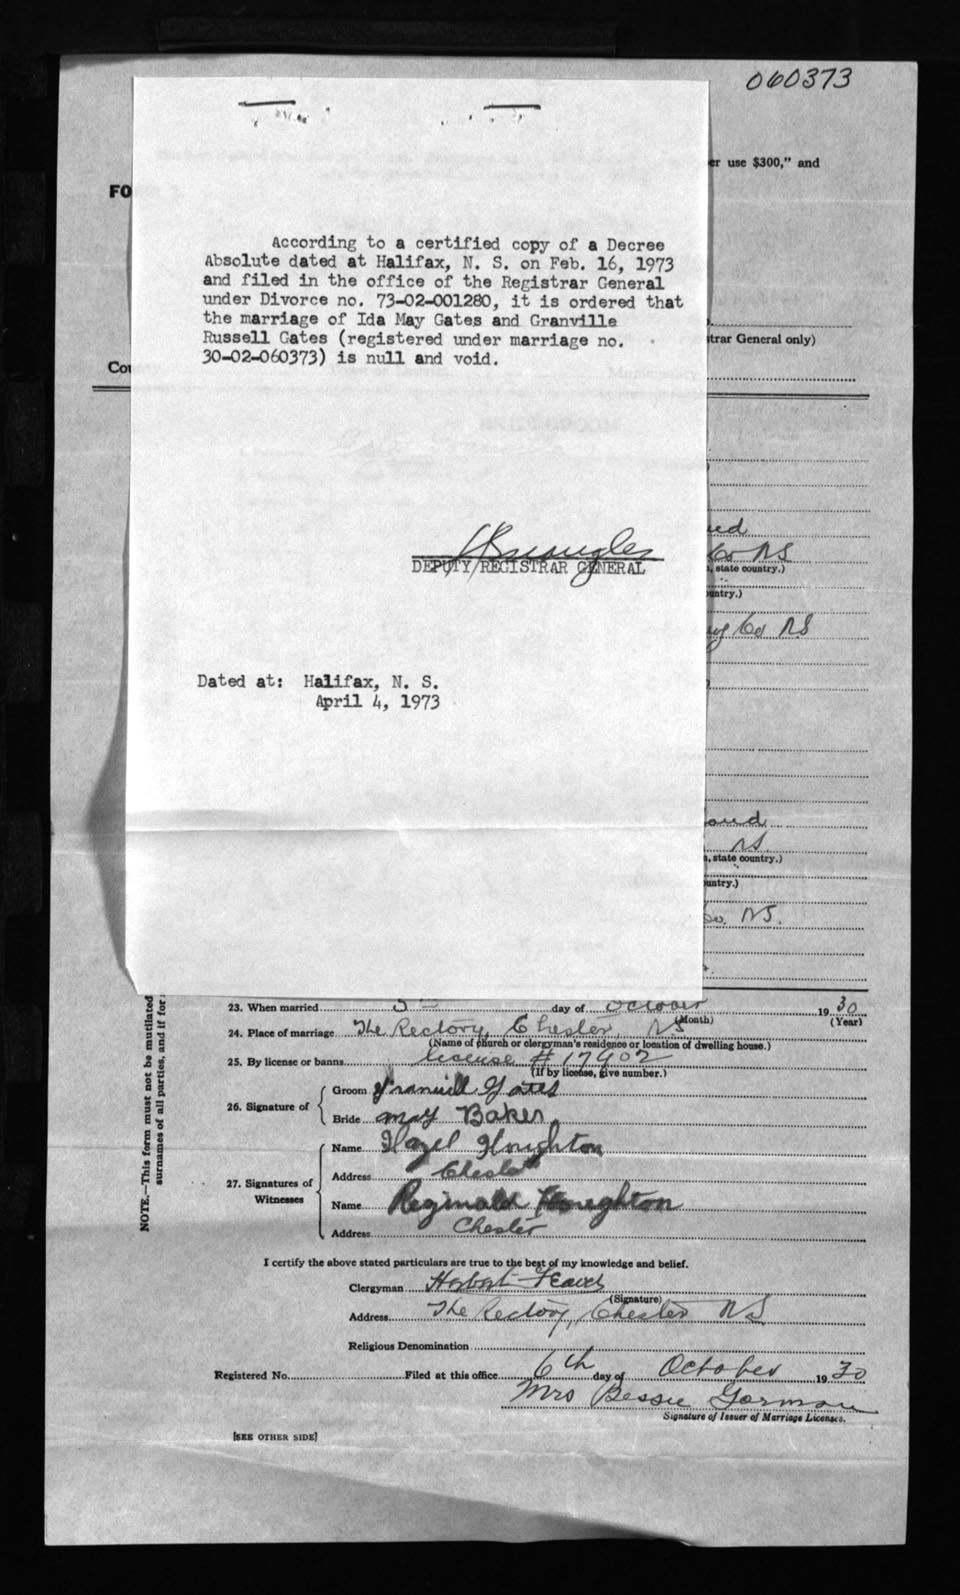 060373
er use $300," and
FO
According to a certified copy of a Decree
Absolute dated at Halifax, N. S. on Feb. 16, 1973
and filed in the office of the Registrar General
under Divorce no. 73-02-001280, it is ordered that
the marriage of Ida May Gates and Granville
Russell Gates (registered under marriage no.
30-02-060373) is null and void.
trar General only)
Cou
Co NS
, state country.)
untry.)
Co NS
DEPUTY REGISTRAR GENERAL
Dated at: Halifax, N. S.
April 4, 1973
NS.
, state country.)
untry.)
Co. NS.
NOTE.—This form must not be mutilated
surnames of all parties, and if for
23. When married day of October 1930
(Month) (Year)
24. Place of marriage The Rectory, Chester, NS
(Name of church or clergyman's residence or location of dwelling house.)
25. By license or banns license # 17902
(If by license, give number.)
26. Signature of
Groom Granvill Gates
Bride may Baker
27. Signatures of
Witnesses
Name Hazel Houghton
Address Chester
Name Reginald Houghton
Address Chester
I certify the above stated particulars are true to the best of my knowledge and belief.
Clergyman Herbert
(Signature)
Address The Rectory, Chester NS
Religious Denomination
Registered No. Filed at this office 6th day of October 1930
Mrs Bessie Gorman
Signature of Issuer of Marriage Licenses.
[SEE OTHER SIDE]